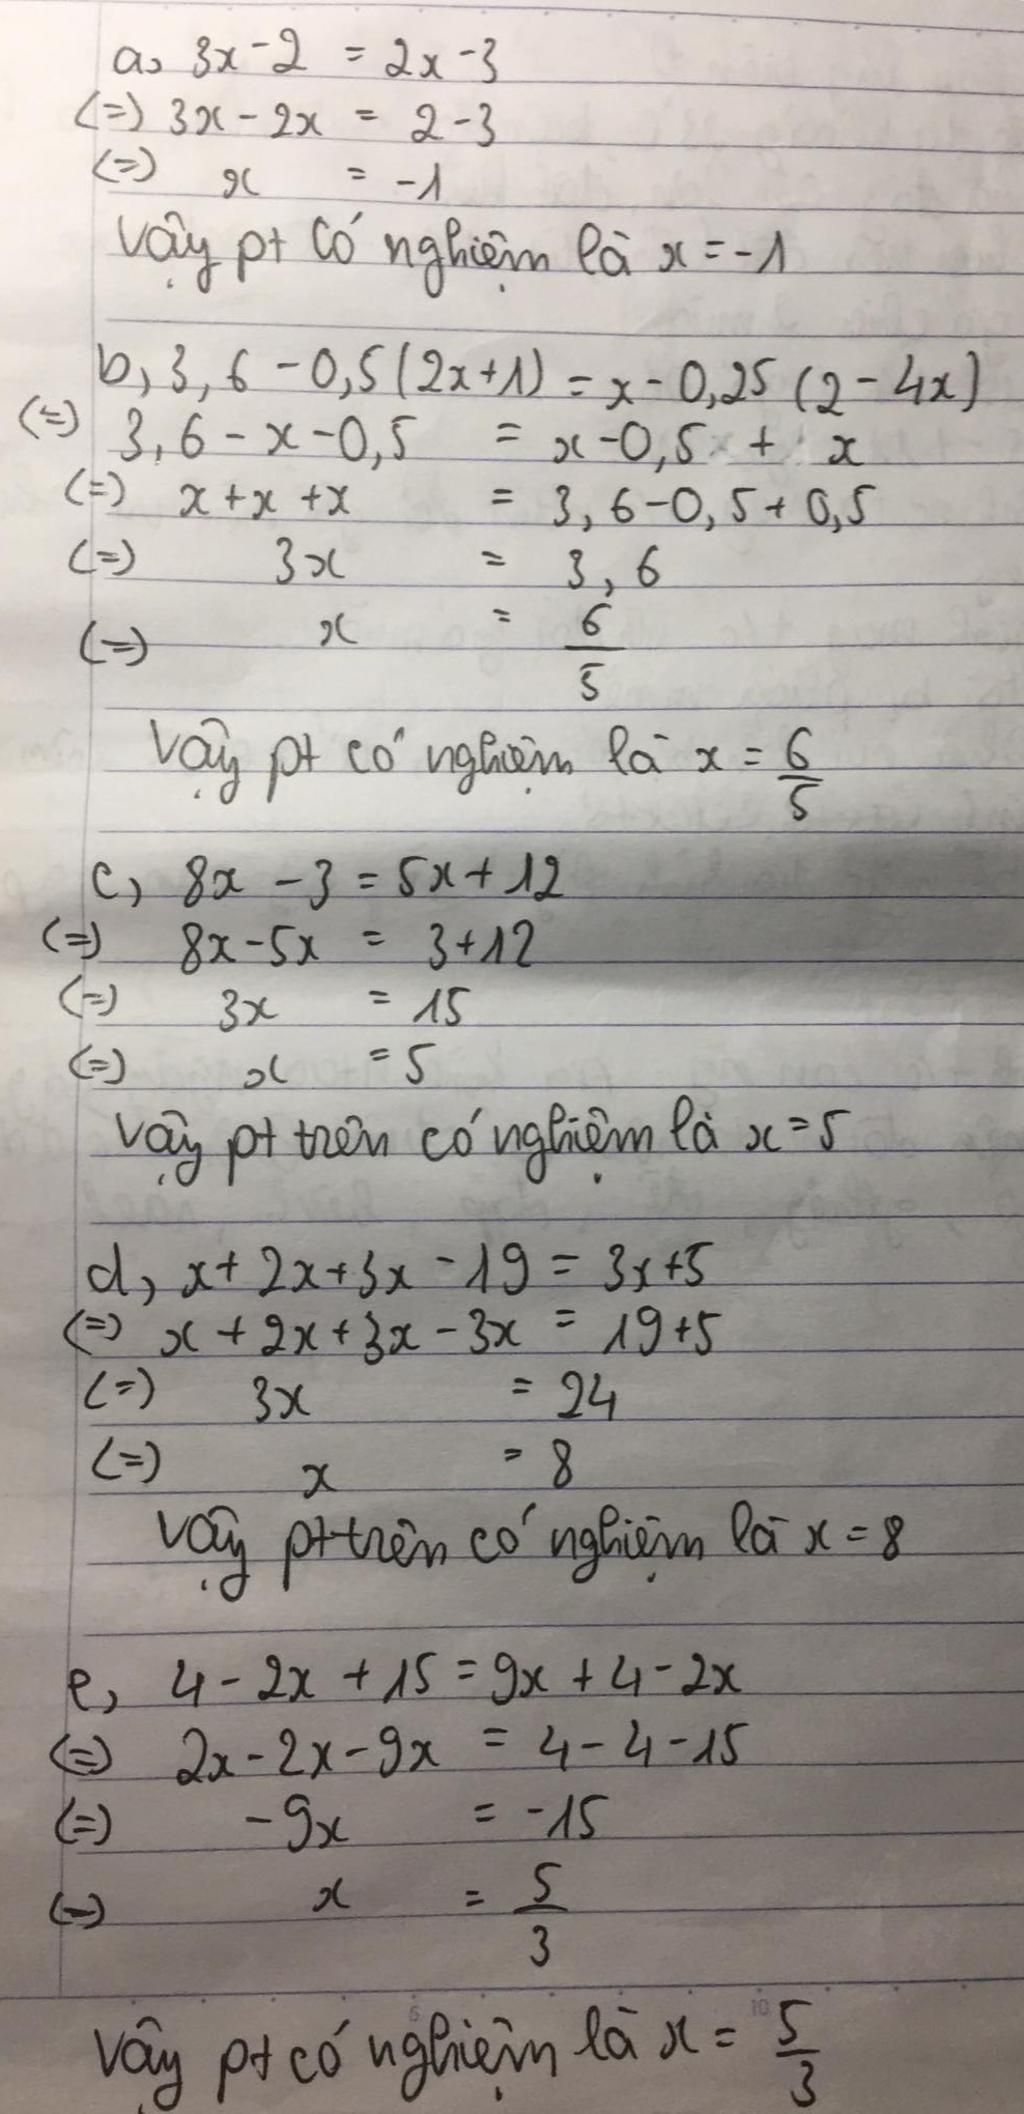 a, 3x - 2 = 2x - 3
(=) 3x - 2x = 2 - 3
(=) x = -1
Vậy pt có nghiệm là x = -1
b, 3,6 - 0,5 (2x+1) = x - 0,25 (2 - 4x)
(=) 3,6 - x - 0,5 = x - 0,5 + x
(=) x + x + x = 3,6 - 0,5 + 0,5
(=) 3x = 3,6
(=) x = 6/5
Vậy pt có nghiệm là x = 6/5
c, 8x - 3 = 5x + 12
(=) 8x - 5x = 3 + 12
(=) 3x = 15
(=) x = 5
Vậy pt trên có nghiệm là x = 5
d, x + 2x + 3x - 19 = 3x + 5
(=) x + 2x + 3x - 3x = 19 + 5
(=) 3x = 24
(=) x = 8
Vậy pt trên có nghiệm là x = 8
e, 4 - 2x + 15 = 9x + 4 - 2x
(=) 2x - 2x - 9x = 4 - 4 - 15
(=) -9x = -15
(=) x = 5/3
5 10
Vậy pt có nghiệm là x = 5/3